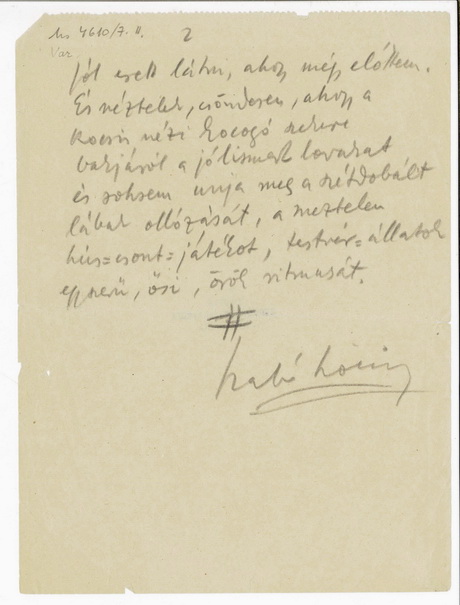 Ms 4610/7. II. 2
Var.
jól esett látni, ahogy mégy előttem.
És néztelek, csöndesen, ahogy a
kocsis nézi kocogó szekere
bakjáról a jólismert lovakat
és sohsem unja meg a szétdobált
lábak ollózását, a meztelen
hús=csont=játékot, testvér=állatok
egyszerű, ősi, örök ritmusát.
Szabó Lőrinc